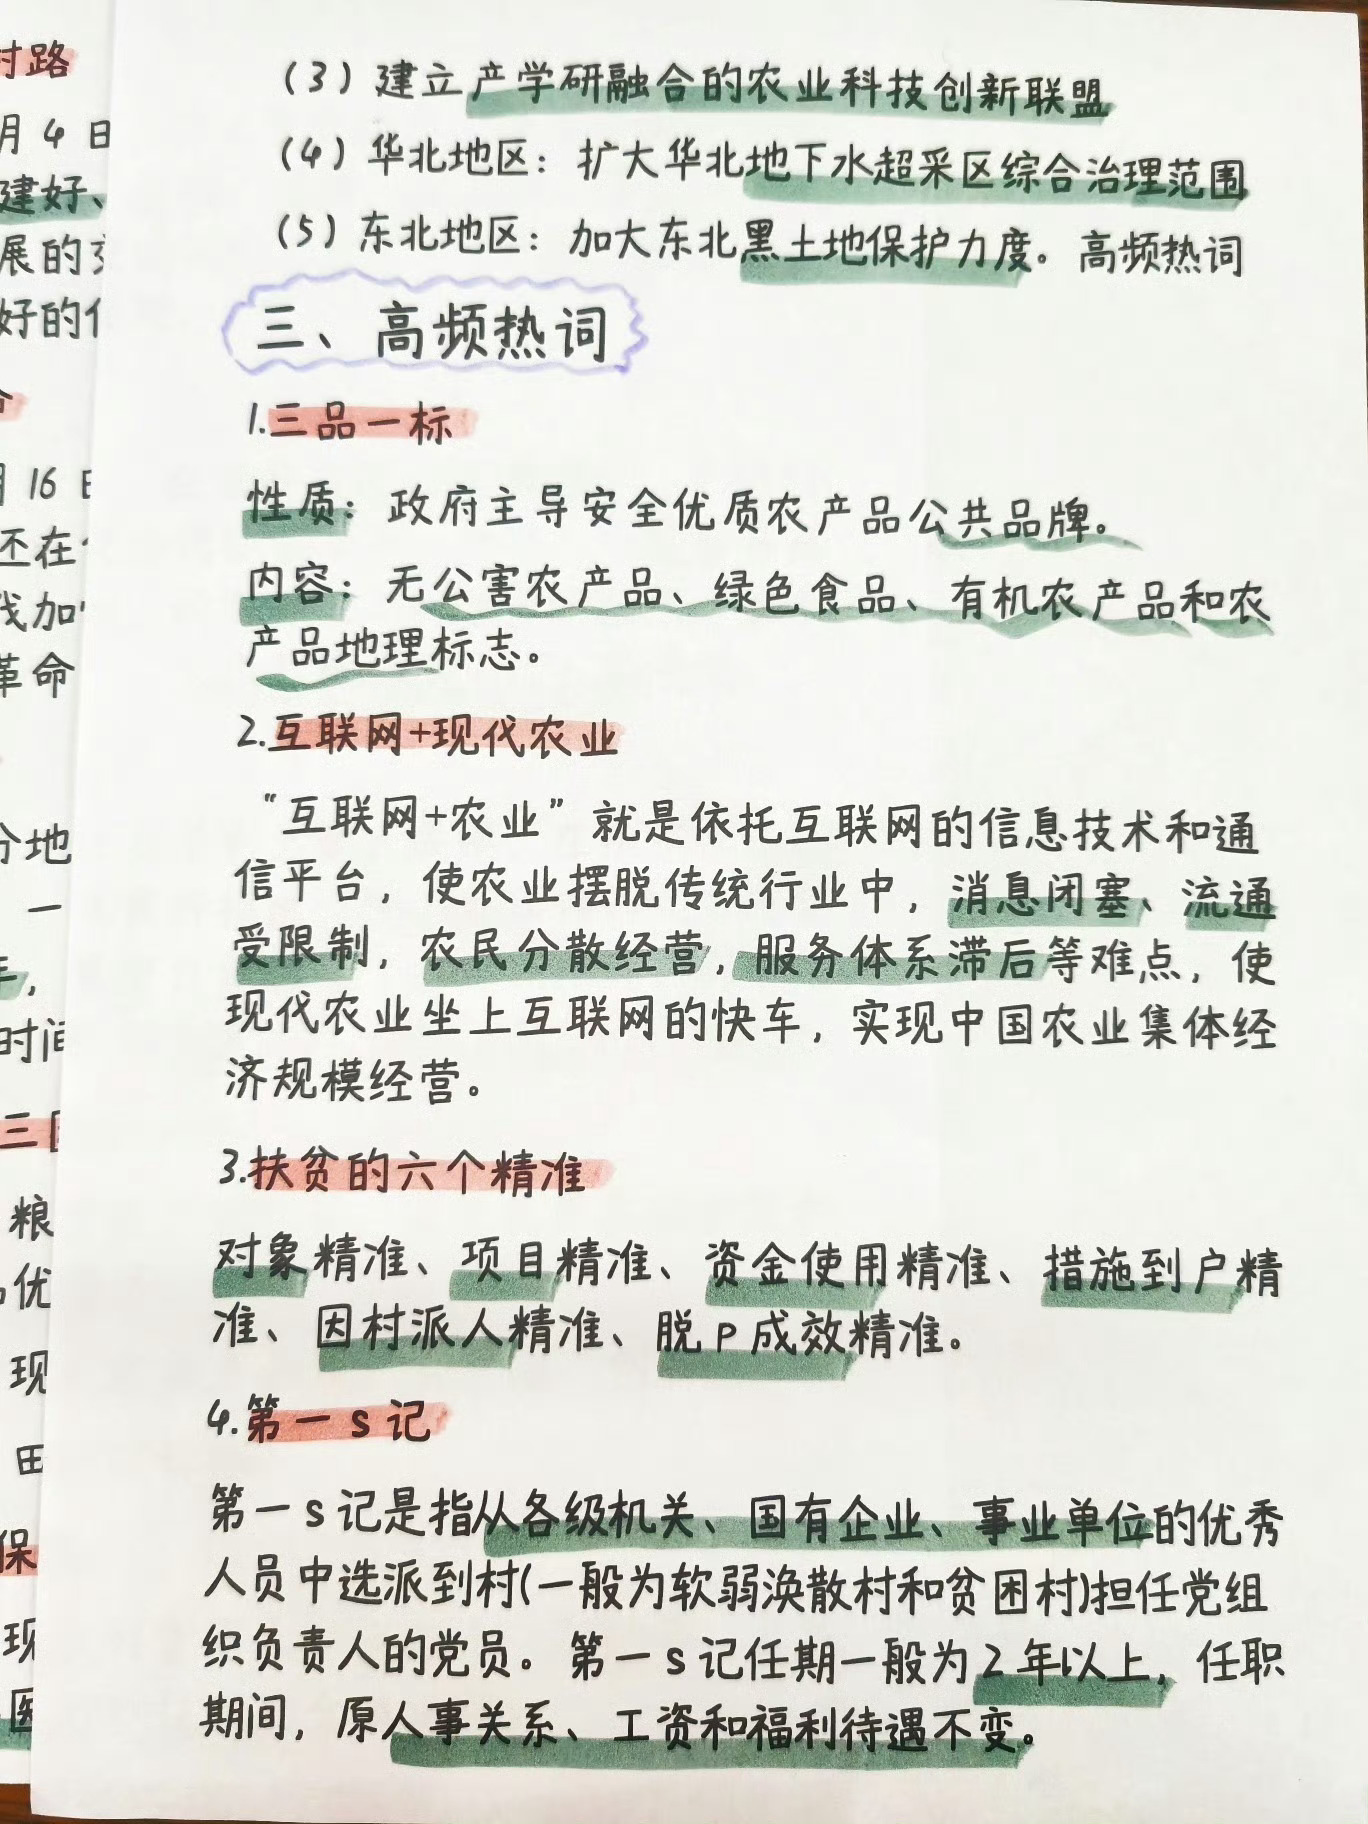 村路
月4日
建好、
展的
好的
月16日
还在
加
革命
分地
一
时间
三
粮
优
现
田
保
现
（3）建立产学研融合的农业科技创新联盟
（4）华北地区：扩大华北地下水超采区综合治理范围
（5）东北地区：加大东北黑土地保护力度。高频热词
三、高频热词
1.三品一标
性质：政府主导安全优质农产品公共品牌。
内容：无公害农产品、绿色食品、有机农产品和农
产品地理标志。
2.互联网+现代农业
“互联网+农业”就是依托互联网的信息技术和通
信平台，使农业摆脱传统行业中，消息闭塞、流通
受限制，农民分散经营，服务体系滞后等难点，使
现代农业坐上互联网的快车，实现中国农业集体经
济规模经营。
3.扶贫的六个精准
对象精准、项目精准、资金使用精准、措施到户精
准、因村派人精准、脱P成效精准。
4.第一s记
第一s记是指从各级机关、国有企业、事业单位的优秀
人员中选派到村(一般为软弱涣散村和贫困村)担任党组
织负责人的党员。第一s记任期一般为2年以上，任职
期间，原人事关系、工资和福利待遇不变。